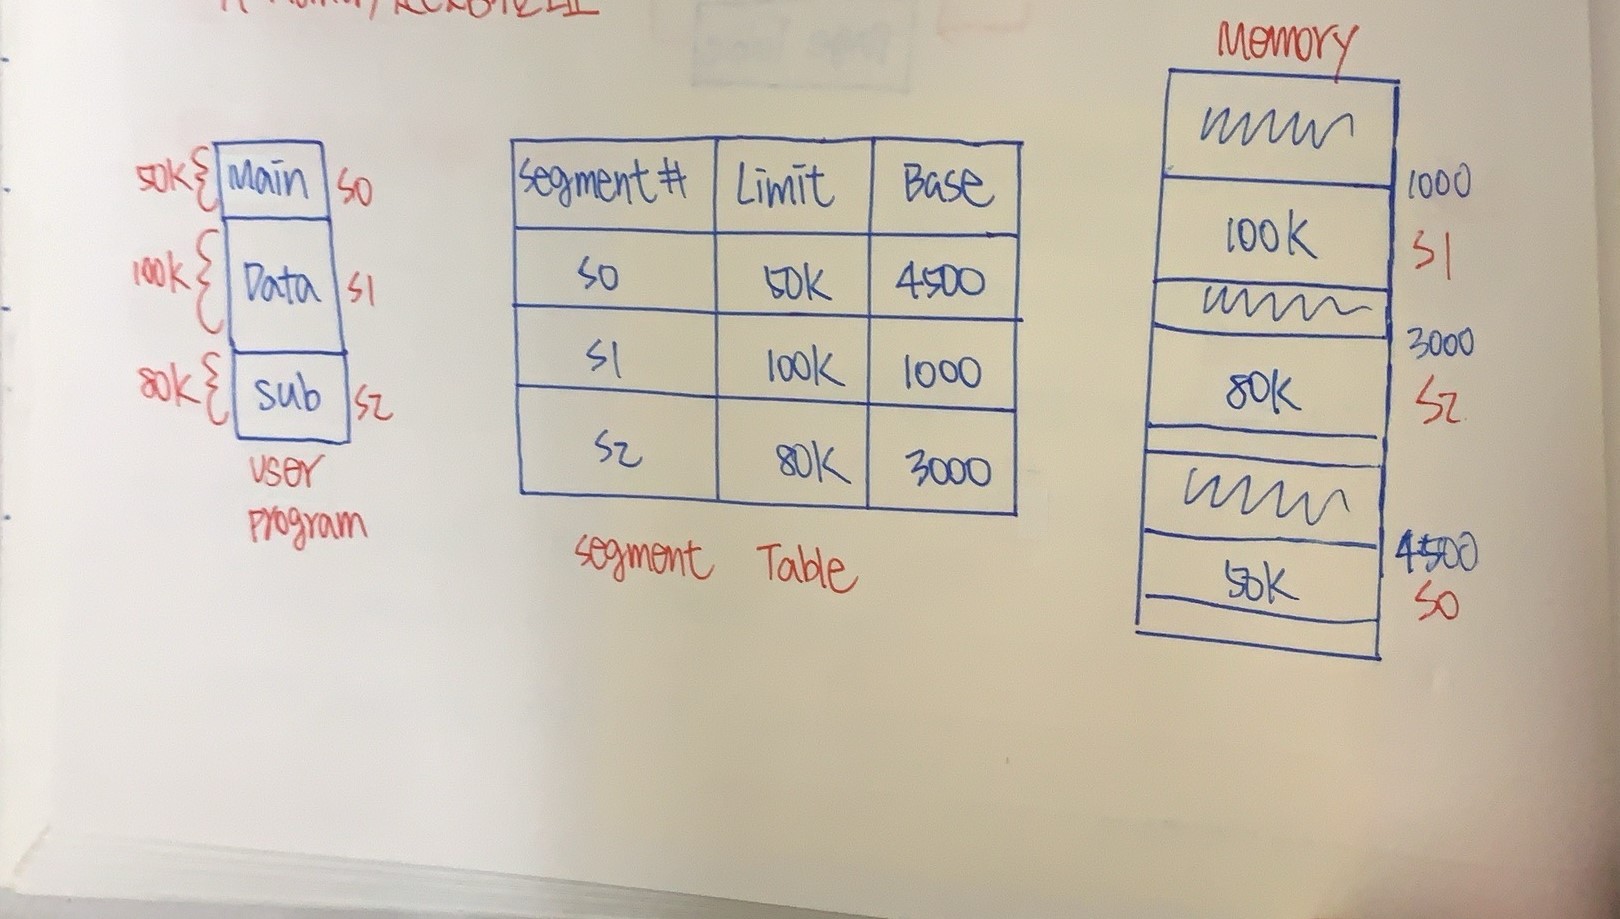 Memory
50K { Main S0
100K { Data S1
80K { Sub S2
user
program
segment# Limit Base
S0 50K 4500
S1 100K 1000
S2 80K 3000
segment Table
1000
100K S1
3000
80K S2
4500
50K S0